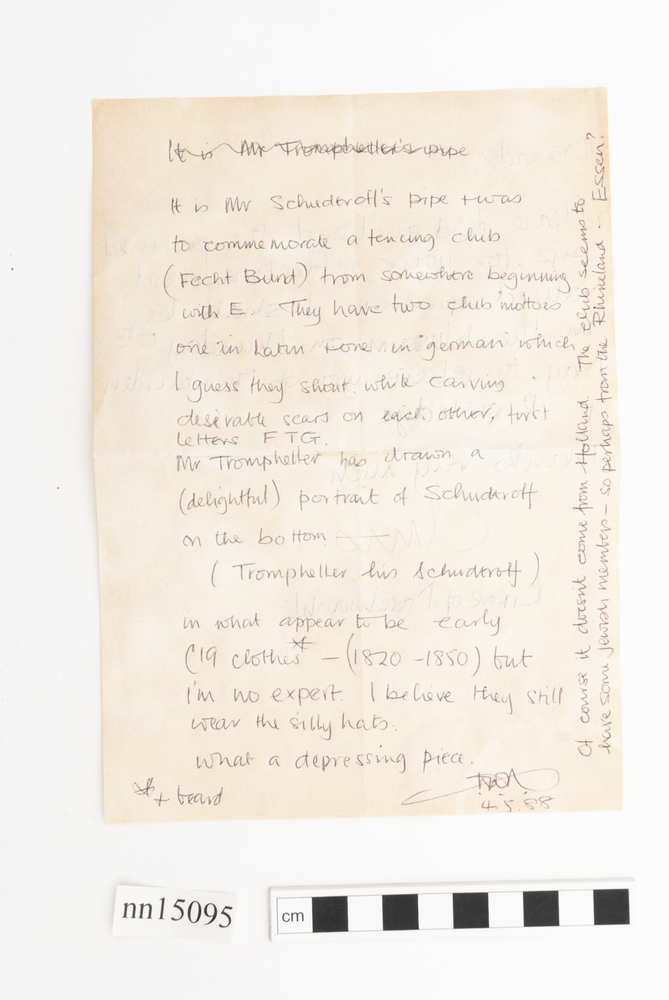 It is Mr Trompheller's pipe
It is Mr Schuderoff's pipe + was
to commemorate a fencing club
(Fecht Bund) from somewhere beginning
with E. They have two club 'mottoes
one in Latin + one in german which
I guess they shout while carving
desirable scars on each other, first
letters F T G.
Mr Trompheller has drawn a
(delightful) portrait of Schuderoff
on the bottom —
( Trompheller his Schuderoff )
in what appear to be early
C'19 clothes* – (1820 - 1850) but
I'm no expert. I believe they still
wear the silly hats.
what a depressing piece.
* + beard
4.5.88
Of course it doesn't come from Holland. The club seems to
have some Jewish members – so perhaps from the Rhineland - Essen?
nn15095
cm